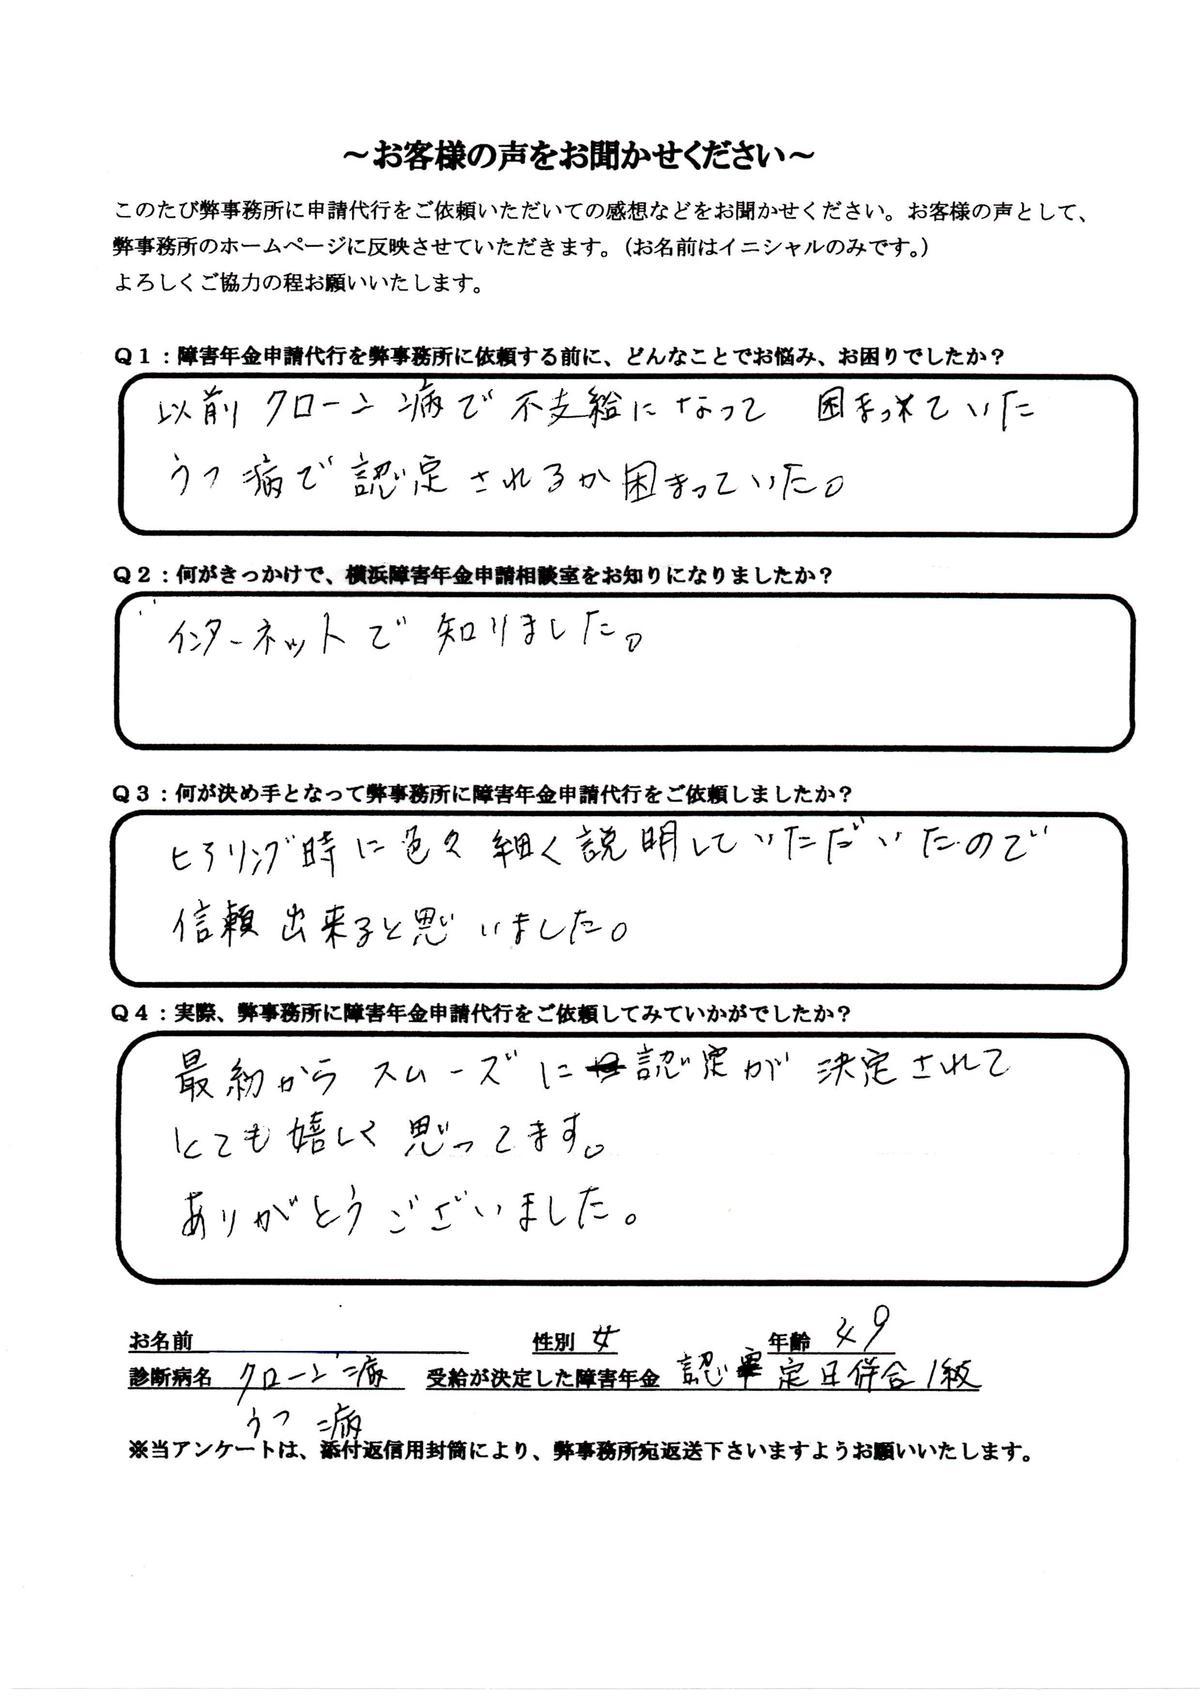 ～お客様の声をお聞かせください～
このたび弊事務所に申請代行をご依頼いただいての感想などをお聞かせください。お客様の声として、
弊事務所のホームページに反映させていただきます。（お名前はイニシャルのみです。）
よろしくご協力の程お願いいたします。
Ｑ１：障害年金申請代行を弊事務所に依頼する前に、どんなことでお悩み、お困りでしたか？
以前クローン病で不支給になって 困まっていた
うつ病で認定されるか困まっていた。
Ｑ２：何がきっかけで、横浜障害年金申請相談室をお知りになりましたか？
インターネットで知りました。
Ｑ３：何が決め手となって弊事務所に障害年金申請代行をご依頼しましたか？
ヒアリング時に色々細く説明していただいたので
信頼出来ると思いました。
Ｑ４：実際、弊事務所に障害年金申請代行をご依頼してみていかがでしたか？
最初からスムーズに認定が決定されて
とても嬉しく思ってます。
ありがとうございました。
お名前 性別 女 年齢 49
診断病名 クローン病 受給が決定した障害年金 認定日併合1級
うつ病
※当アンケートは、添付返信用封筒により、弊事務所宛返送下さいますようお願いいたします。